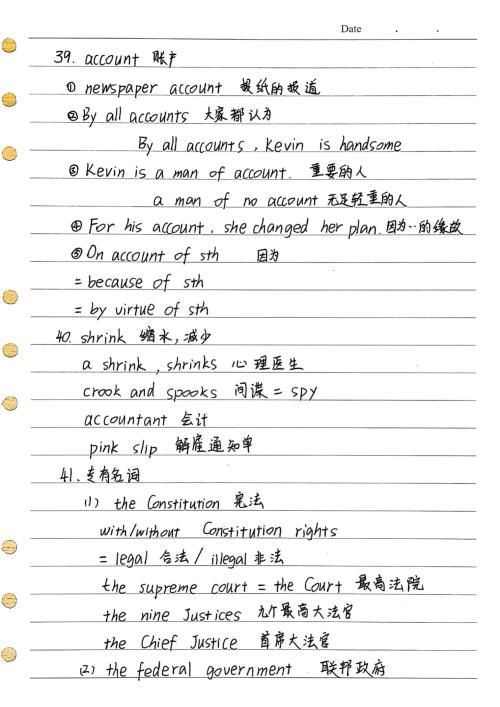 Date . .
39. account 账户
① newspaper account 报纸的报道
② By all accounts 大家都认为
By all accounts, Kevin is handsome
③ Kevin is a man of account. 重要的人
a man of no account 无足轻重的人
④ For his account, she changed her plan. 因为··的缘故
⑤ On account of sth 因为
= because of sth
= by virtue of sth
40. shrink 缩水,减少
a shrink, shrinks 心理医生
crook and spooks 间谍 = spy
accountant 会计
pink slip 解雇通知单
41. 专有名词
(1) the Constitution 宪法
with/without Constitution rights
= legal 合法 / illegal 非法
the supreme court = the Court 最高法院
the nine Justices 九个最高大法官
the Chief Justice 首席大法官
(2) the federal government 联邦政府